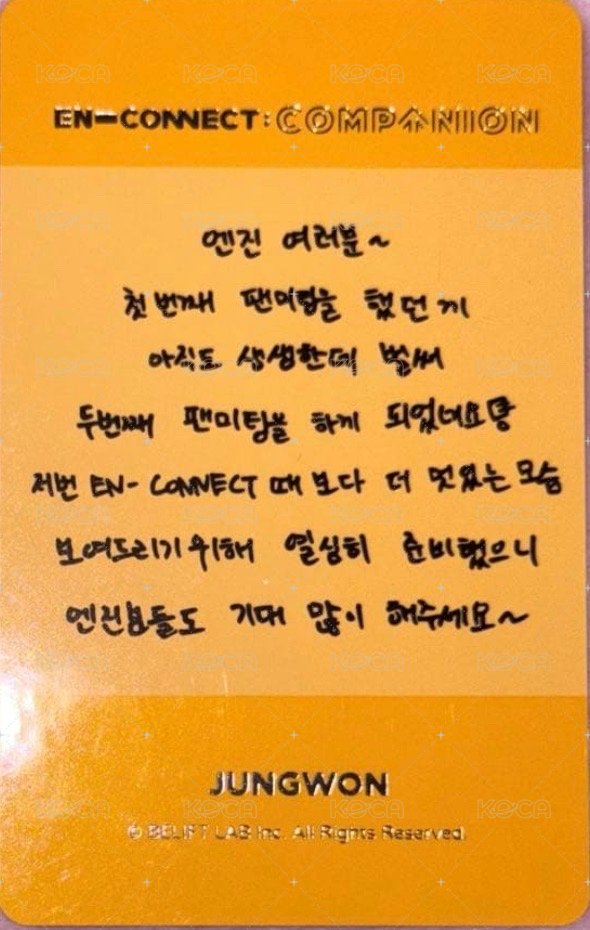 EN-CONNECT: COMPANION
엔진 여러분~
첫번째 팬미팅을 했던게
아직도 생생한데 벌써
두번째 팬미팅을 하게 되었네요
저번 EN-CONNECT 때보다 더 멋있는 모습
보여드리기위해 열심히 준비했으니
엔진분들도 기대 많이 해주세요~
JUNGWON
© BELIFT LAB Inc. All Rights Reserved.
KOCA